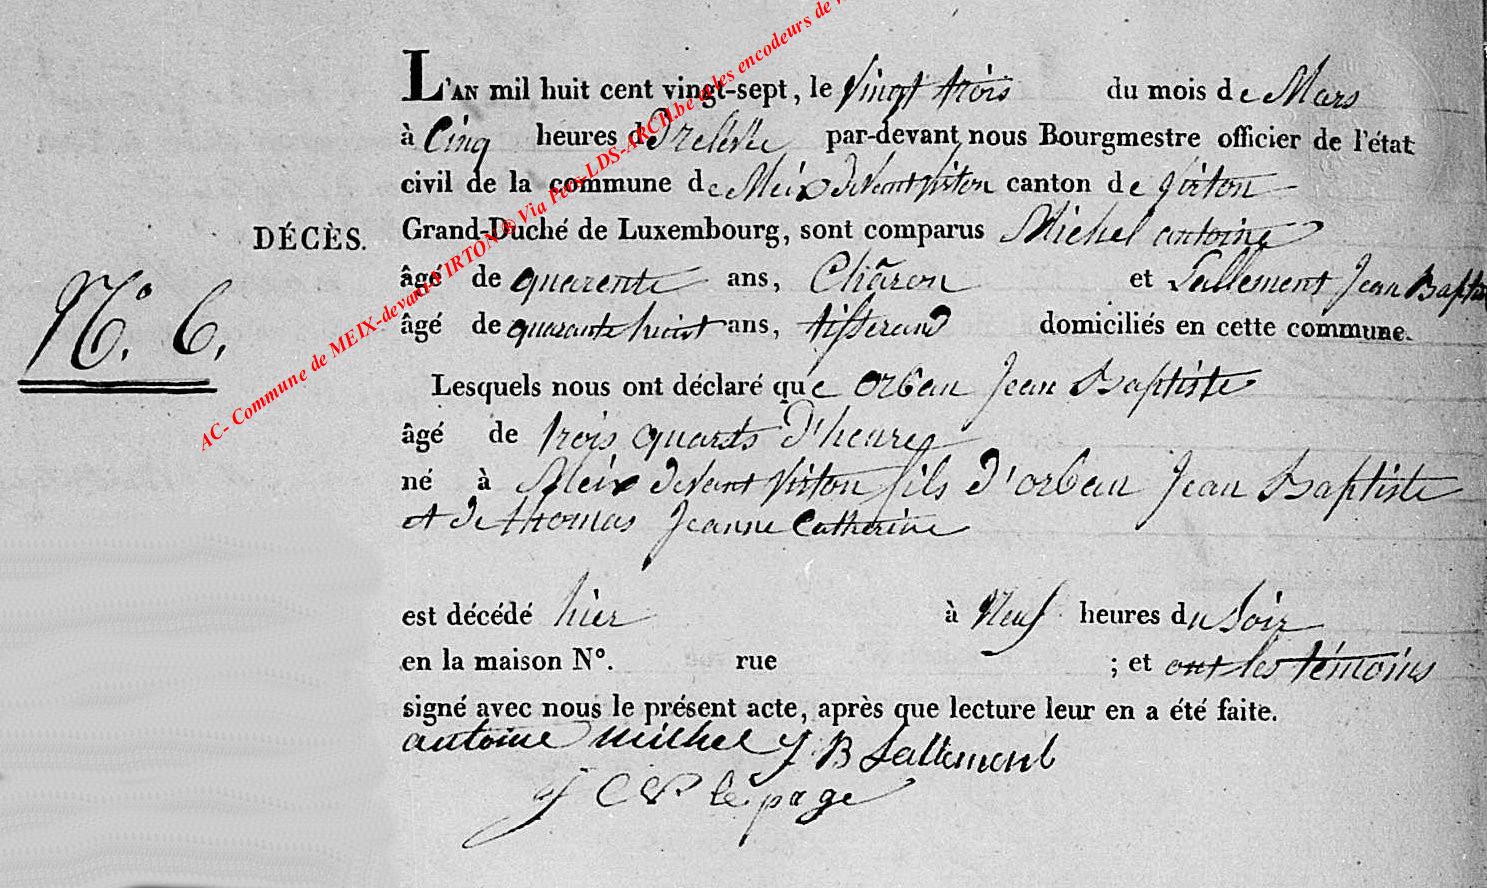 L'AN mil huit cent vingt-sept, le Vingt trois du mois de Mars
à Cinq heures de relevée par-devant nous Bourgmestre officier de l'état
civil de la commune de Meix devant virton canton de virton
DÉCÈS.
Grand-Duché de Luxembourg, sont comparus Michel antoine
N.° 6.
âgé de quarente ans, Charon et Lallement Jean Baptis
âgé de quarante huit ans, tisserand domiciliés en cette commune.
Lesquels nous ont déclaré que orban Jean Baptiste
âgé de trois quarts d'heure
né à Meix devant Virton fils d'orban Jean Baptiste
et de thomas Jeanne Catherine
est décédé hier à Neuf heures du Soir
en la maison N°. rue ; et ont les témoins
signé avec nous le présent acte, après que lecture leur en a été faite.
antoine michel J B Lallement
lepage
AC- Commune de MEIX-devant-VIRTON ® Via Pers-LDS-ARCH.be et les encodeurs de